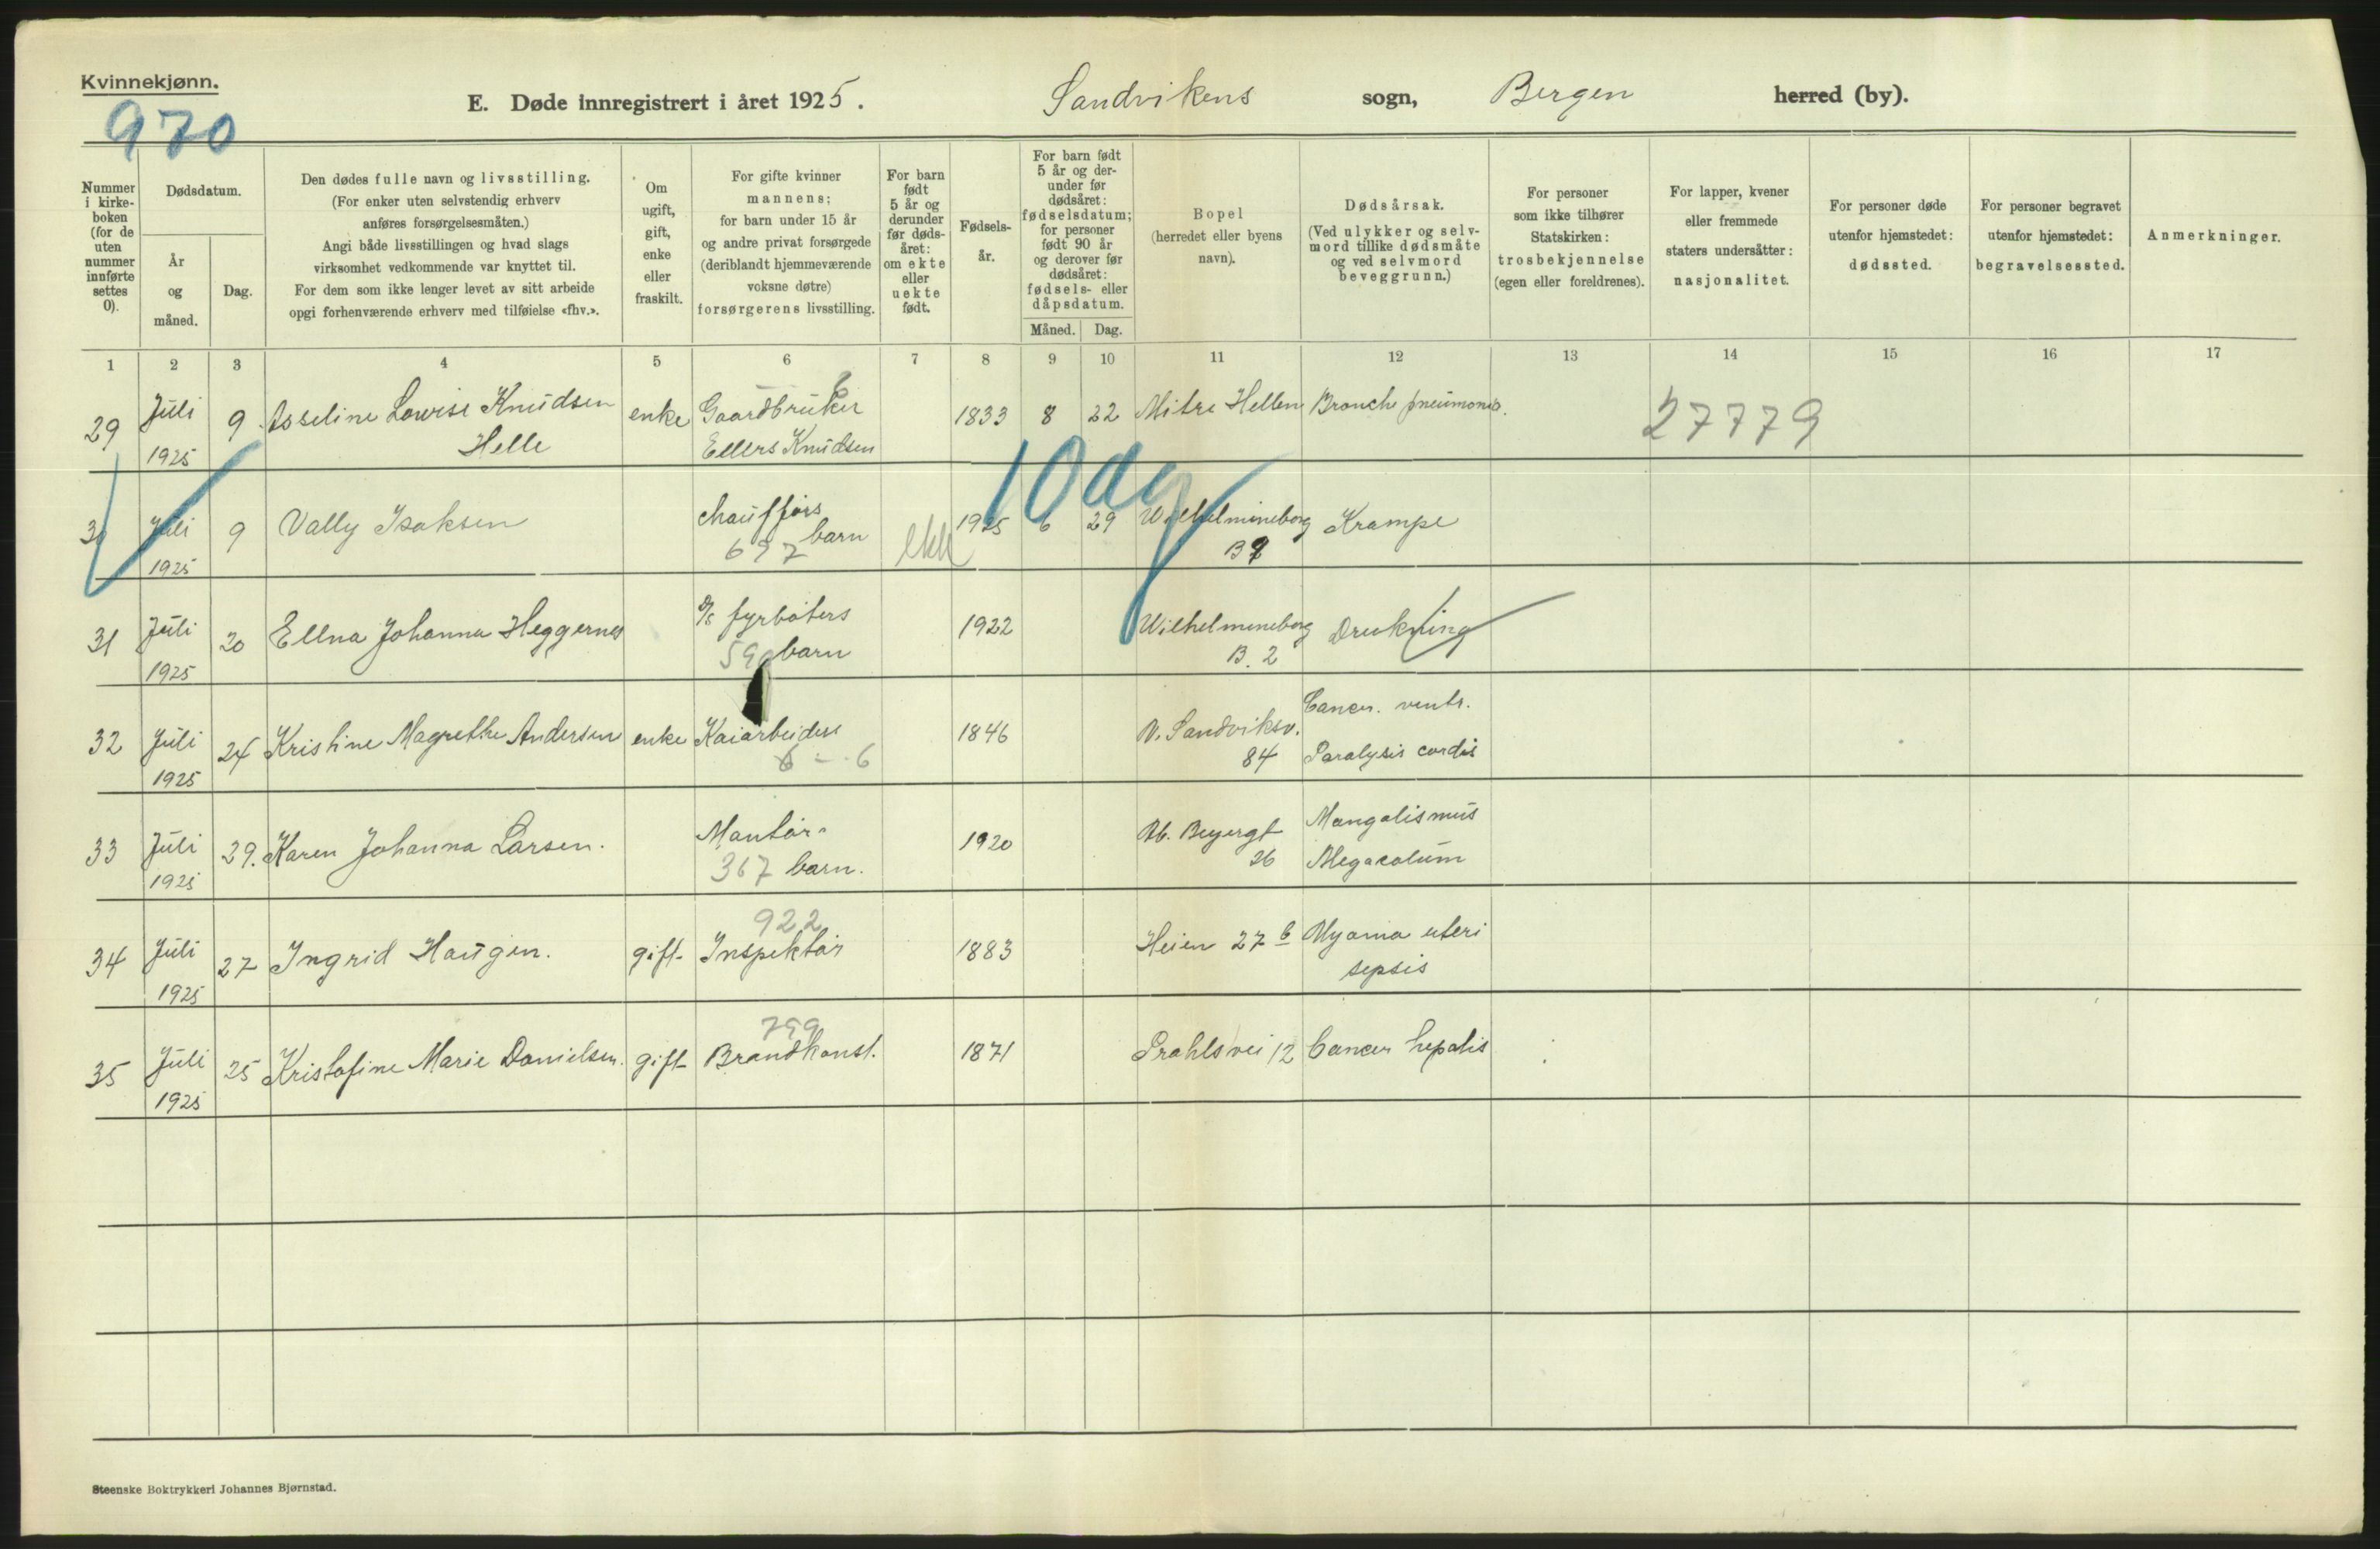 Kvinnekjønn.
970
E. Døde innregistrert i året 1925.
Sandvikens sogn, Bergen herred (by).
Nummer i kirkeboken (for de uten nummer innførte settes 0).
Dødsdatum.
År og måned.
Dag.
Den dødes fulle navn og livsstilling.
(For enker uten selvstendig erhverv
anføres forsørgelsesmåten.)
Angi både livsstillingen og hvad slags
virksomhet vedkommende var knyttet til.
For dem som ikke lenger levet av sitt arbeide
opgi forhenværende erhverv med tilføielse «fhv.».
Om
ugift,
gift,
enke
eller
fraskilt.
For gifte kvinner
mannens;
for barn under 15 år
og andre privat forsørgede
(deriblandt hjemmeværende
voksne døtre)
forsørgerens livsstilling.
For barn
født
5 år og
derunder
før døds-
året:
om ekte
eller
uekte
født.
Fødsels-
år.
For barn født
5 år og der-
under før
dødsåret:
fødselsdatum;
for personer
født 90 år
og derover før
dødsåret:
fødsels- eller
dåpsdatum.
Måned. Dag.
Bopel
(herredet eller byens
navn).
Dødsårsak.
(Ved ulykker og selv-
mord tillike dødsmåte
og ved selvmord
beveggrunn.)
For personer
som ikke tilhører
Statskirken:
trosbekjennelse
(egen eller foreldrenes).
For lapper, kvener
eller fremmede
staters undersåtter:
nasjonalitet.
For personer døde
utenfor hjemstedet:
dødssted.
For personer begravet
utenfor hjemstedet:
begravelsessted.
Anmerkninger.
1 2 3 4 5 6 7 8 9 10 11 12 13 14 15 16 17
29 Juli 9 Asseline Lowise Knudsen enke Gaardbruker 1833 8 22 Mitre Hellen Bronche pneumonia. 27779
1925 Helle Ellers Knudsen
10 dg
30 Juli 9 Vally Isaksen chaufførs 1925 6 29 Wilhelmineborg Krampe
1925 barn 697 B 2
31 Juli 20 Ellna Johanna Heggernes fyrbøters 1922 Wilhelmineborg Drukning
1925 barn B. 2
32 Juli 24 Kristine Magrethe Andersen enke Kaiarbeiders 1846 N. Sandviksv. Cancer. ventr.
1925 6 - 6 84 Paralysis cordis
33 Juli 29. Karen Johanna Larsen. Montør- 1920 Beyergt Mongolismus
1925 367 barn. 26 Megacolum
922
34 Juli 27 Ingrid Haugen. gift Inspektør 1883 Heien 27 b Myoma uteri
1925 sepsis
799
35 Juli 25 Kristofine Marie Danielsen. gift Brandkonst. 1871 Prahls vei 12 Cancer hepatis
1925
Steenske Boktrykkeri Johannes Bjørnstad.